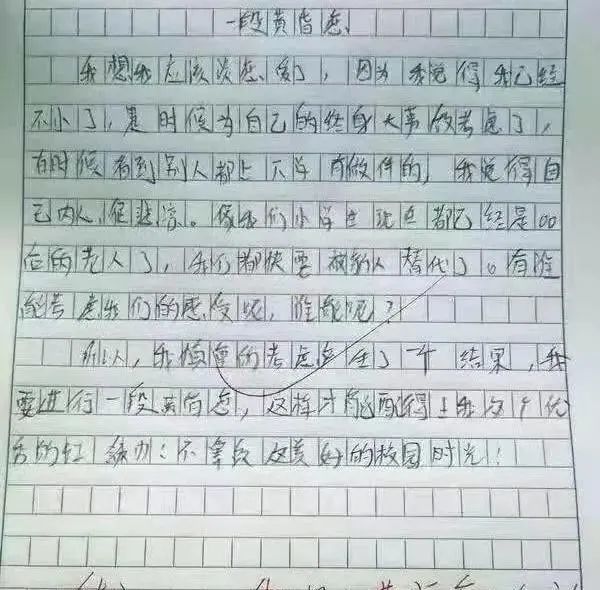 一段黄昏恋
我想我应该谈恋爱了，因为我觉得我已经
不小了，是时候为自己的终身大事做考虑了，
有时候看到别人都上下学有伴的，我觉得自
己内人很悲凉。像我们小学生现在都已经是00
后的老人了，我们都快要被新人替代了。有谁
能考虑我们的感受呢，谁能呢？
所以，我慎重的考虑出了一个结果，我
要进行一段黄昏恋，这样才能配得上我这个优
秀的红领巾：不辜负这美好的校园时光！